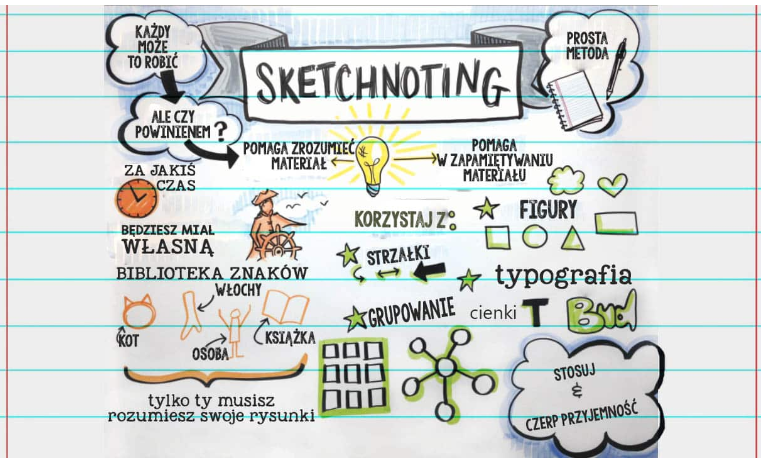 KAŻDY
MOŻE
TO ROBIĆ
SKETCHNOTING
PROSTA
METODA
ALE CZY
POWINIENEM ?
POMAGA ZROZUMIEĆ
MATERIAŁ
POMAGA
W ZAPAMIĘTYWANIU
MATERIAŁU
ZA JAKIŚ
CZAS
BĘDZIESZ MIAŁ
WŁASNĄ
BIBLIOTEKA ZNAKÓW
WŁOCHY
KOT
OSOBA
KSIĄŻKA
tylko ty musisz
rozumiesz swoje rysunki
KORZYSTAJ Z:
FIGURY
STRZAŁKI
typografia
GRUPOWANIE
cienki T Bud
STOSUJ
&
CZERP PRZYJEMNOŚĆ